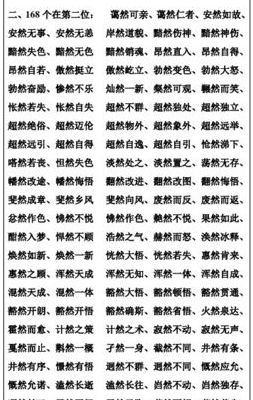 二、168 个在第二位： 蔼然可亲、蔼然仁者、安然如故、
安然无事、安然无恙 岸然道貌、黯然伤神、黯然神伤、
黯然失色、黯然无色 黯然销魂、昂然直入、昂然自得、
昂然自若、傲然挺立 傲然屹立、勃然变色、勃然大怒、
勃然奋励、惨然不乐 灿然一新、粲然可观、冁然而笑、
怅然若失、怅然自失 超然不群、超然独处、超然独立、
超然绝俗、超然迈伦 超然物外、超然象外、超然远举、
超然远引、超然自得 超然自逸、超然自引、怆然涕下、
嗒然若丧、怛然失色 淡然处之、淡然置之、荡然无存、
幡然改途、幡然悔悟 翻然改进、翻然改图、翻然悔悟、
斐然成章、斐然乡风 斐然向风、废然而反、废然而返、
忿然作色、怫然不悦 怫然作色、艴然不悦、果然如此、
酣然入梦、悍然不顾 浩然之气、赫然而怒、涣然冰释、
焕然如新、焕然一新 恍然大悟、恍然若失、惠然肯来、
惠然之顾、浑然天成 浑然无知、浑然一体、浑然自成、
混然天成、混然一体 豁然大悟、豁然顿悟、豁然贯通、
豁然开朗、豁然开悟 豁然确斯、豁然省悟、火然泉达、
霍然而愈、计然之策 计然之术、寂然不动、寂然无声、
戛然而止、斠然一概 孑然一身、截然不同、井然有条、
井然有序、憬然有悟 迥然不群、迥然不同、慨然应允、
慨然允诺、溘然长逝 溘然长往、岿然不动、岿然独存、